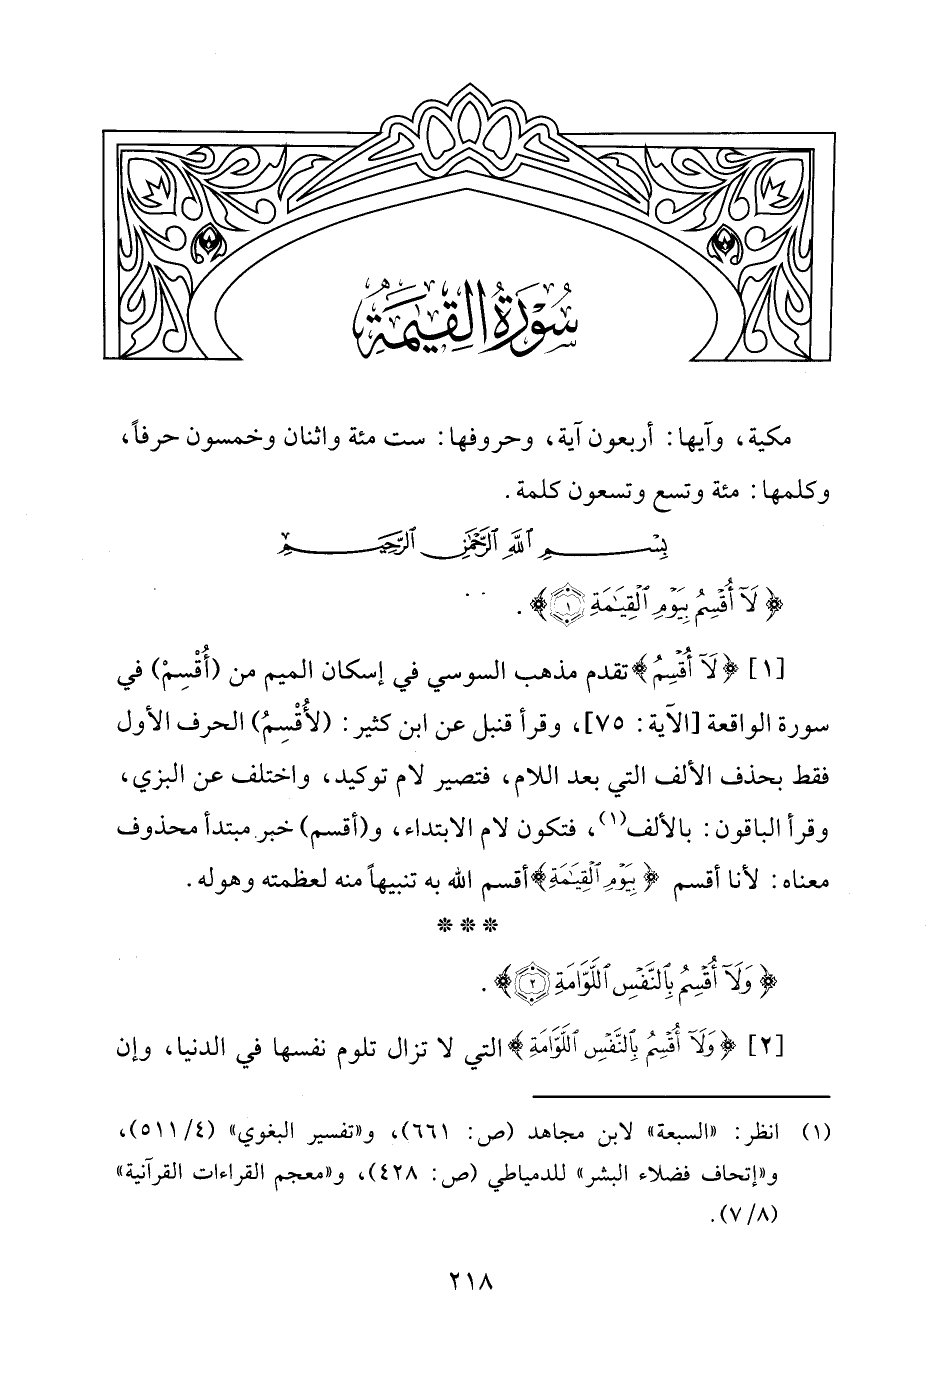 سُورَةُ القِيَمَةِ
مكية، وآيها: أربعون آية، وحروفها: ست مئة واثنان وخمسون حرفاً،
وكلمها: مئة وتسع وتسعون كلمة.
بِسْمِ ٱللَّهِ ٱلرَّحْمَٰنِ ٱلرَّحِيمِ
﴿ لَآ أُقْسِمُ بِيَوْمِ ٱلْقِيَٰمَةِ ١ ﴾.
[١] ﴿ لَآ أُقْسِمُ ﴾ تقدم مذهب السوسي في إسكان الميم من (أُقْسِمْ) في
سورة الواقعة [الآية: ٧٥]، وقرأ قنبل عن ابن كثير: (لأُقْسِمُ) الحرف الأول
فقط بحذف الألف التي بعد اللام، فتصير لام توكيد، واختلف عن البزي،
وقرأ الباقون: بالألف(١)، فتكون لام الابتداء، و(أقسم) خبر مبتدأ محذوف
معناه: لأنا أقسم ﴿ بِيَوْمِ ٱلْقِيَٰمَةِ ﴾ أقسم الله به تنبيهاً منه لعظمته وهوله.
* * *
﴿ وَلَآ أُقْسِمُ بِٱلنَّفْسِ ٱللَّوَّامَةِ ٢ ﴾.
[٢] ﴿ وَلَآ أُقْسِمُ بِٱلنَّفْسِ ٱللَّوَّامَةِ ﴾ التي لا تزال تلوم نفسها في الدنيا، وإن
(١) انظر: «السبعة» لابن مجاهد (ص: ٦٦١)، و«تفسير البغوي» (٤/ ٥١١)،
و«إتحاف فضلاء البشر» للدمياطي (ص: ٤٢٨)، و«معجم القراءات القرآنية»
(٨/ ٧).
٢١٨